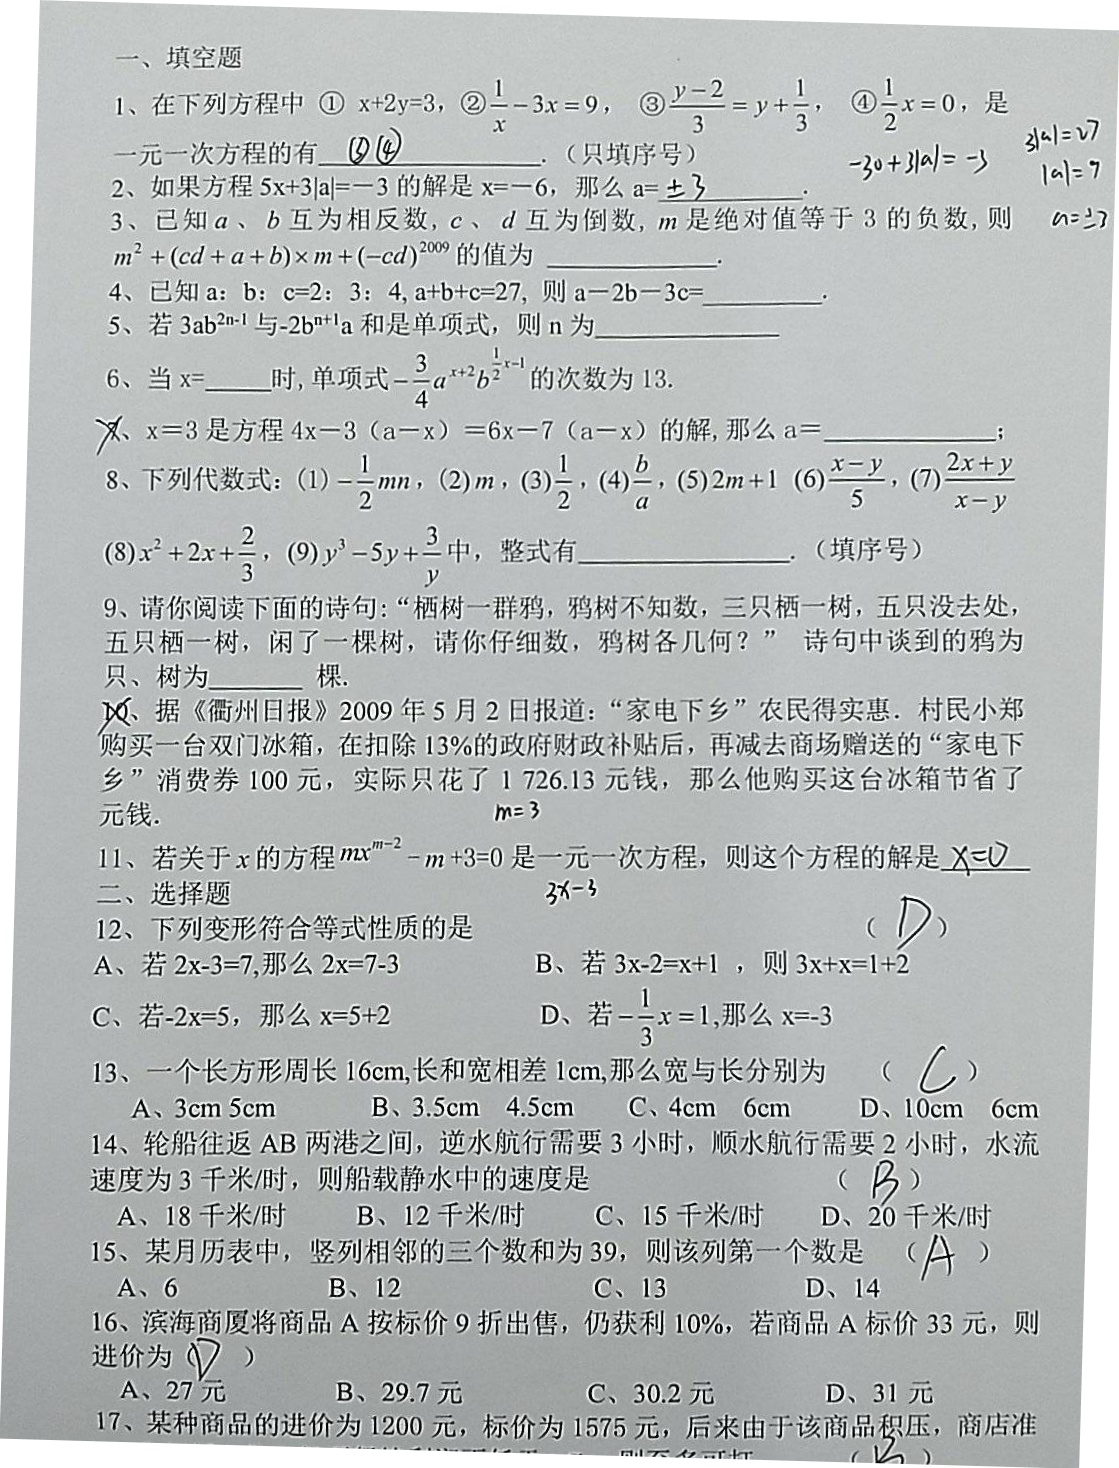 一、填空题
1、在下列方程中 ① x+2y=3，②1/x－3x＝9， ③(y－2)/3＝y＋1/3， ④1/2x＝0，是
3|a|=27
一元一次方程的有 ③④ .（只填序号）
-30+3|a|=-3
|a|=9
2、如果方程 5x+3|a|=－3 的解是 x=－6，那么 a= ±3 .
3、已知 a 、 b 互为相反数, c 、 d 互为倒数, m 是绝对值等于 3 的负数, 则
a=±3
m²+(cd+a+b)×m+(−cd)²⁰⁰⁹ 的值为 ____________.
4、已知 a：b：c=2：3：4, a+b+c=27, 则 a－2b－3c=_________.
5、若 3ab²ⁿ⁻¹ 与-2bⁿ⁺¹a 和是单项式，则 n 为______________
6、当 x=_____时, 单项式 −3/4 a^(x+2) b^(1/2x−1) 的次数为 13.
7、x＝3 是方程 4x－3（a－x）＝6x－7（a－x）的解, 那么 a＝_____________；
8、下列代数式：(1) −1/2mn，(2) m，(3) 1/2，(4) b/a，(5) 2m+1 (6) (x−y)/5，(7) (2x+y)/(x−y)
(8) x²+2x+2/3，(9) y³−5y+3/y 中，整式有________________.（填序号）
9、请你阅读下面的诗句：“栖树一群鸦，鸦树不知数，三只栖一树，五只没去处，
五只栖一树，闲了一棵树，请你仔细数，鸦树各几何？” 诗句中谈到的鸦为
只、树为_______ 棵.
10、据《衢州日报》2009 年 5 月 2 日报道：“家电下乡”农民得实惠．村民小郑
购买一台双门冰箱，在扣除 13%的政府财政补贴后，再减去商场赠送的“家电下
乡”消费券 100 元，实际只花了 1 726.13 元钱，那么他购买这台冰箱节省了
元钱.
m=3
11、若关于 x 的方程 mx^(m−2) − m +3=0 是一元一次方程，则这个方程的解是 x=0
二、选择题
3x-3
12、下列变形符合等式性质的是 （ D ）
A、若 2x-3=7,那么 2x=7-3 B、若 3x-2=x+1 ，则 3x+x=1+2
C、若-2x=5，那么 x=5+2 D、若 −1/3x=1,那么 x=-3
13、一个长方形周长 16cm,长和宽相差 1cm,那么宽与长分别为 （ C ）
A、3cm 5cm B、3.5cm 4.5cm C、4cm 6cm D、10cm 6cm
14、轮船往返 AB 两港之间，逆水航行需要 3 小时，顺水航行需要 2 小时，水流
速度为 3 千米/时，则船载静水中的速度是 （ B ）
A、18 千米/时 B、12 千米/时 C、15 千米/时 D、20 千米/时
15、某月历表中，竖列相邻的三个数和为 39，则该列第一个数是 （ A ）
A、6 B、12 C、13 D、14
16、滨海商厦将商品 A 按标价 9 折出售，仍获利 10%，若商品 A 标价 33 元，则
进价为（ D ）
A、27 元 B、29.7 元 C、30.2 元 D、31 元
17、某种商品的进价为 1200 元，标价为 1575 元，后来由于该商品积压，商店准
则至多可打 （ B ）